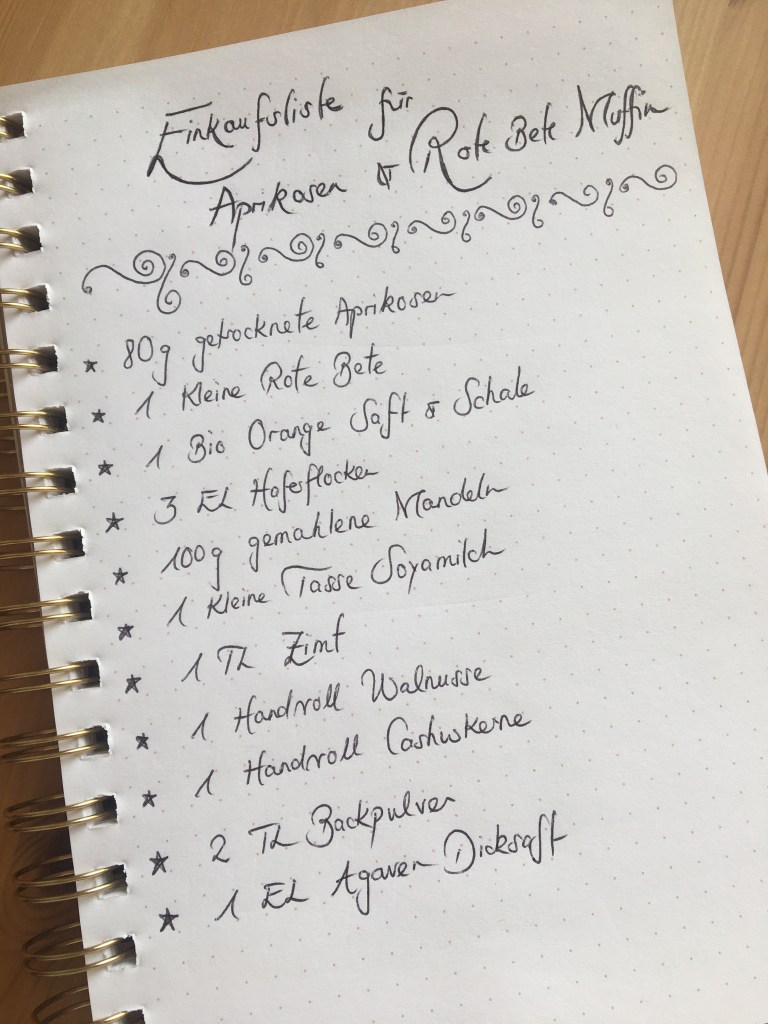 Einkaufsliste für
Aprikosen & Rote Bete Muffin
★ 80g getrocknete Aprikosen
★ 1 Kleine Rote Bete
★ 1 Bio Orange Saft & Schale
★ 3 EL Haferflocken
★ 100g gemahlene Mandeln
★ 1 Kleine Tasse Soyamilch
★ 1 TL Zimt
★ 1 Handvoll Walnusse
★ 1 Handvoll Cashwkerne
★ 2 TL Backpulver
★ 1 EL Agaven Dicksaft